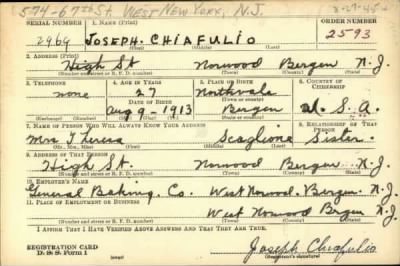 574-67th St. WEST NEW YORK, N.J.
SERIAL NUMBER 1. NAME (Print) ORDER NUMBER
2969 JOSEPH CHIAFULIO 2593
(First) (Middle) (Last)
2. ADDRESS (Print)
High St Norwood Bergen N.J.
(Number and street or R. F. D. number) (Town) (County) (State)
3. TELEPHONE 4. AGE IN YEARS 5. PLACE OF BIRTH 6. COUNTRY OF CITIZENSHIP
none 27 Northvale
DATE OF BIRTH (Town or county)
Aug 9 - 1913 Bergen U. S. A.
(Exchange) (Number) (Mo.) (Day) (Yr.) (State or country)
7. NAME OF PERSON WHO WILL ALWAYS KNOW YOUR ADDRESS 8. RELATIONSHIP OF THAT PERSON
Mrs Theresa Scaglione Sister
(Mr., Mrs., Miss) (First) (Middle) (Last)
9. ADDRESS OF THAT PERSON
High St. Norwood Bergen N.J.
(Number and street or R. F. D. number) (Town) (County) (State)
10. EMPLOYER'S NAME
General Baking Co. West Norwood Bergen N.J.
11. PLACE OF EMPLOYMENT OR BUSINESS
West Norwood Bergen N.J.
(Number and street or R. F. D. number) (Town) (County) (State)
I AFFIRM THAT I HAVE VERIFIED ABOVE ANSWERS AND THAT THEY ARE TRUE.
REGISTRATION CARD Joseph Chiafulio
D. S. S. Form 1 (Registrant's signature)